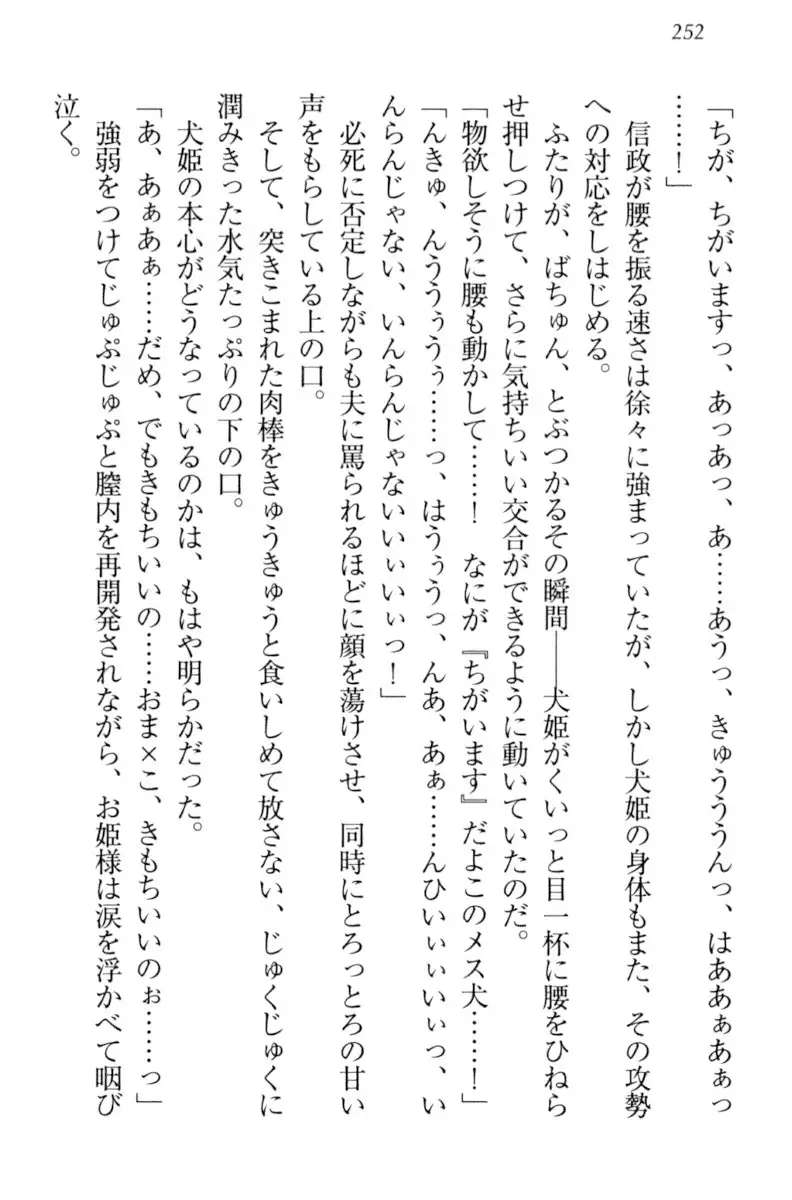 252
「ちが、ちがいますっ、あっあっ、あ……あうっ、きゅうううんっ、はああぁあぁっ
……！」
信政が腰を振る速さは徐々に強まっていたが、しかし犬姫の身体もまた、その攻勢
への対応をしはじめる。
ふたりが、ばちゅん、とぶつかるその瞬間――犬姫がくいっと目一杯に腰をひねら
せ押しつけて、さらに気持ちいい交合ができるように動いていたのだ。
「物欲しそうに腰も動かして……！　なにが『ちがいます』だよこのメス犬……！」
「んきゅ、んううぅうぅ……っ、はうぅうっ、んあ、あぁ……んひいぃぃいぃっ、い
んらんじゃない、いんらんじゃないいぃいぃっ！」
必死に否定しながらも夫に罵られるほどに顔を蕩けさせ、同時にとろっとろの甘い
声をもらしている上の口。
そして、突きこまれた肉棒をきゅうきゅうと食いしめて放さない、じゅくじゅくに
潤みきった水気たっぷりの下の口。
犬姫の本心がどうなっているのかは、もはや明らかだった。
「あ、あぁあぁ……だめ、でもきもちいいの……おま×こ、きもちいいのぉ……っ」
強弱をつけてじゅぷじゅぷと膣内を再開発されながら、お姫様は涙を浮かべて咽び
泣く。